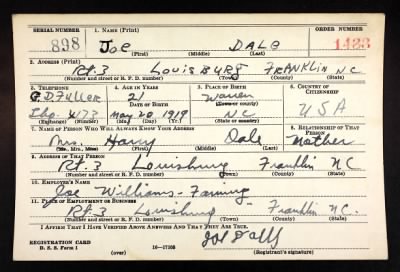 SERIAL NUMBER 1. NAME (Print) ORDER NUMBER
898 Joe DALE 1433
(First) (Middle) (Last)
2. ADDRESS (Print)
Rt.3 LOUISBURG FRANKLIN N.C.
(Number and street or R. F. D. number) (Town) (County) (State)
3. TELEPHONE 4. AGE IN YEARS 5. PLACE OF BIRTH 6. COUNTRY OF CITIZENSHIP
G.D. Fuller 21 Warren
DATE OF BIRTH (Town or county) USA
W73 May 20 1919 NC
(Exchange) (No.) (Mo.) (Day) (Yr.) (State or country)
7. NAME OF PERSON WHO WILL ALWAYS KNOW YOUR ADDRESS 8. RELATIONSHIP OF THAT PERSON
Mrs. Harry Dale Mother
(Mr., Mrs., Miss) (First) (Middle) (Last)
9. ADDRESS OF THAT PERSON
Rt.3 Louisburg Franklin NC
(Number and street or R. F. D. number) (Town) (County) (State)
10. EMPLOYER'S NAME
Joe Williams - Farming
11. PLACE OF EMPLOYMENT OR BUSINESS
Rt-3 Louisburg Franklin NC.
(Number and street or R. F. D. number) (Town) (County) (State)
I AFFIRM THAT I HAVE VERIFIED ABOVE ANSWERS AND THAT THEY ARE TRUE.
REGISTRATION CARD
D. S. S. Form 1 (over) 16—17105 (Registrant's signature)